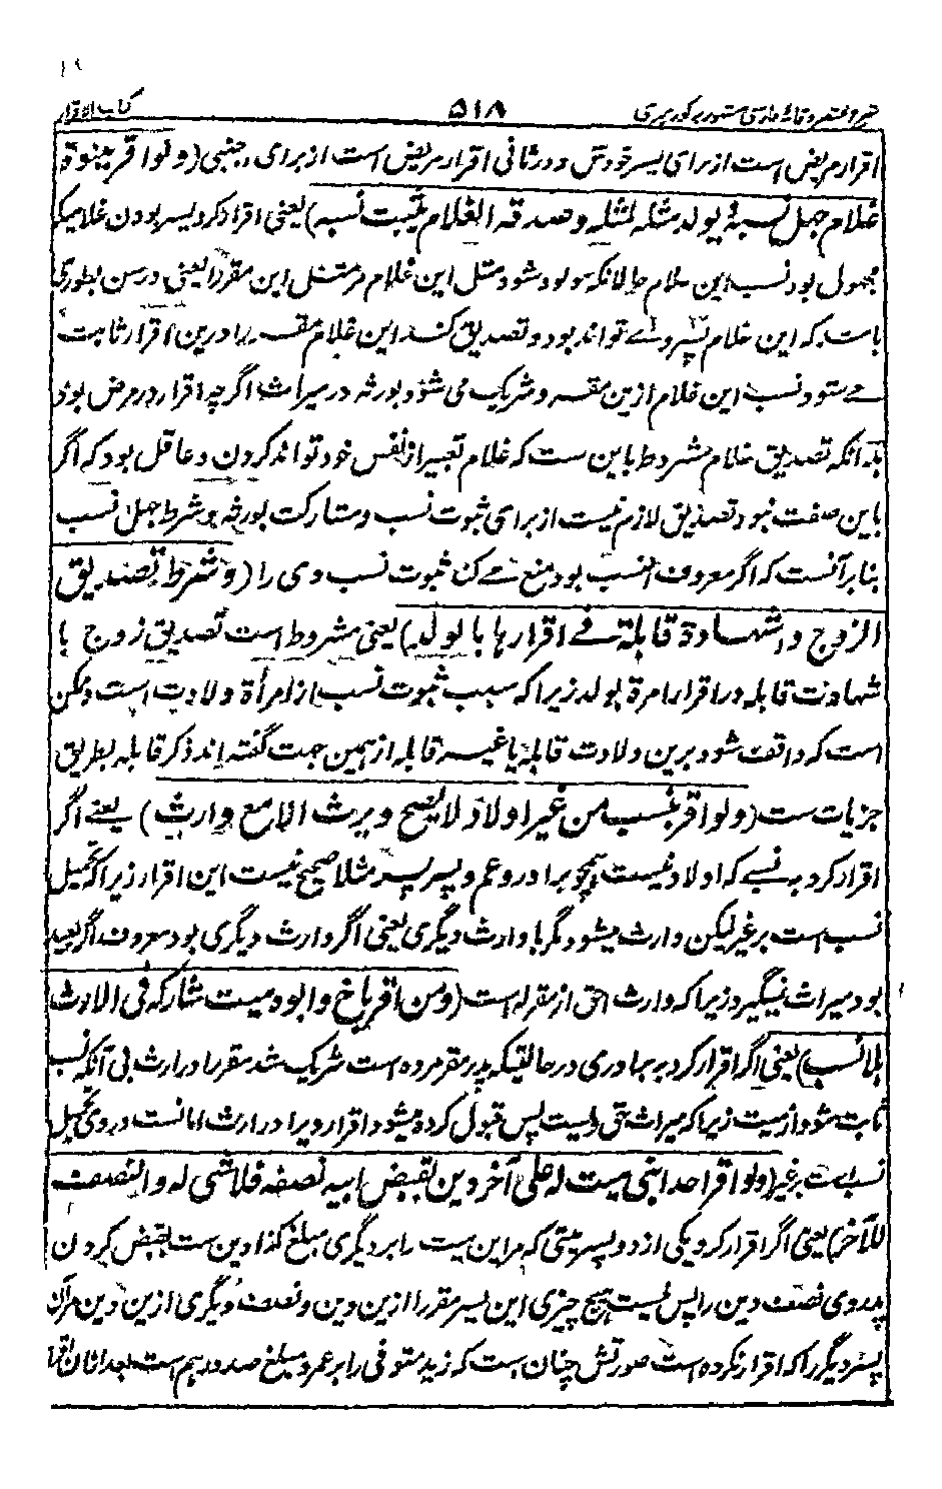 کتاب الاقرار ۵۱۸ شرح مختصر وقایه فارسی
اقرار مریض است از برای پسر خودش و در ثانی اقرار مریض است از برای اجنبی (ولو اقر ببنوة
غلام جهل نسبه یولد مثله لمثله وصدقه الغلام یثبت نسبه) یعنی اقرار کرد پسر بودن غلامیکه
مجهول بود نسب این غلام حالانکه مولود شود مثل این غلام از مثل این مقر را یعنی در سن بطوری
باشد که این غلام پسر وی تواند بود و تصدیق کند این غلام مقر را درین اقرار ثابت
می شود نسب این غلام ازین مقر و شریک می شود بورثه در میراث اگرچه اقرار در مرض بود
بدانکه تصدیق غلام مشروط باین ست که غلام تعبیر از نفس خود تواند کردن و عاقل بود که اگر
باین صفت نبود تصدیق لازم نیست از برای ثبوت نسب و مشارکت بورثه و شرط جهل نسب
بنابر آنست که اگر معروف النسب بود منع می کند ثبوت نسب وی را (وشرط تصدیق
الزوج او شهادة قابلة فی اقرارها بالولد) یعنی مشروط است تصدیق زوج یا
شهادت قابله در اقرار امرة بولد زیرا که سبب ثبوت نسب از امرأة ولادت است و ممکن
است که واقف شود برین ولادت قابله یا غیر قابله از همین جهت گفته اند ذکر قابله بطریق
جزیات ست (ولو اقر بنسب من غیر اولاد لا یصح ویرث الا مع وارث) یعنے اگر
اقرار کرد به نسبے که اولاد نیست همچو برادر و عم و پسر پسر مثلا صحیح نیست این اقرار زیرا که تحمیل
نسب است بر غیر لیکن وارث میشود مگر با وارث دیگری یعنی اگر وارث دیگری بود معروف اگر بعید
بود میراث نمیگیرد زیرا که وارث احق از مقر له است (ومن اقر باخ وابوه میت شارکه فی الارث
بلا نسب) یعنی اگر اقرار کرد به برادری در حالتیکه پدر مقر مرده است شریک شد مقر را در ارث بی آنکه نسب
ثابت شود از میت زیرا که میراث حق ویست پس قبول کرده میشود اقرار ویرا در ارث اما نسب در وی تحمیل
نسب ست بر غیر (ولو اقر احد ابنی میت له علی آخر دین بقبض ابیه نصفه فلا شی له والنصف
للآخر) یعنی اگر اقرار کرد یکی از دو پسر میتی که مر این میت را بر دیگری مبلغ کذا دین ست بقبض کردن
پدر وی نصف دین را پس نیست هیچ چیزی این پسر مقر را ازین دین و نصف دیگری ازین دین مر آن
پسر دیگر را که اقرار نکرده است صورتش چنان است که زید متوفی را بر عمرو مبلغ صد درهم است بعد ازان